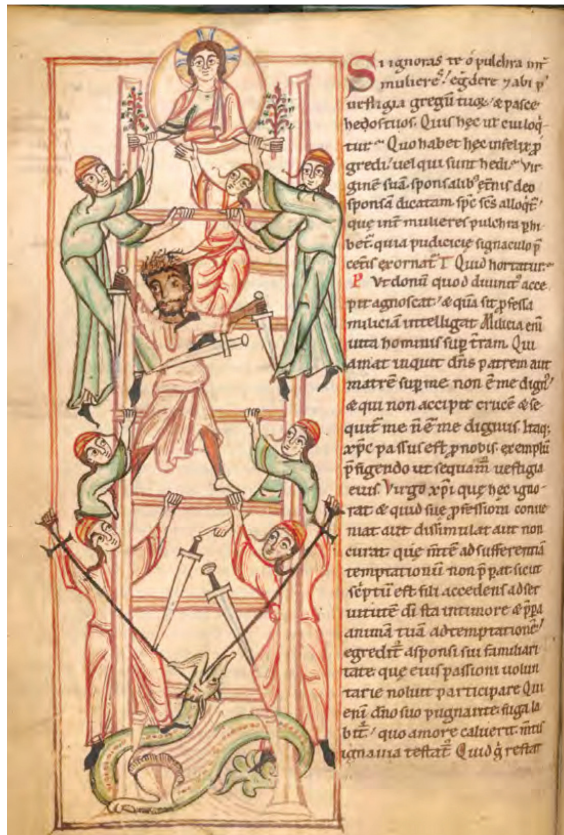 Si ignoras te o pulchra int̄
mulieres egredere ⁊ abi p̾
vestigia gregū tuoꝝ ⁊ pasce
hedos tuos. Quis hec ut cui loq̄
tur. Quo habet hec infelix ꝓ
gredi vel qui sunt hedi. Vir
ginē suā sponsalib; et̄nis deo
sponsā dicatam sp̄c sc̄s alloq̄t̄
que int̄ mulieres pulchra phi
bet̄ quia pudicicie signaculo p̄
cet̄is exornat̄. T Quid hortatur.
P Vt donū quod divinit᾽ acce
pit agnoscat ⁊ quā sit ꝓfessa
miliciā intelligat Milicia eni
vita hominis sup t̄ram. Qui
amat inquit dn̄s patrem aut
matrē sup me non ē me dign᾽
⁊ qui non accipit crucē ⁊ se
quit̄ me n̄ ē me dignus. Itaq;
xp̄c passus est ꝓ nobis exemplū
p̄figendo ut sequam̄ vestigia
eius. Virgo xp̄i que hec igno
rat ⁊ quid sue ꝓfessioni conve
niat aut dissimulat aut non
curat que m̄tē ad sufferentiā
temptationū non p̄parat sicut
sc̄ptū est fili accedens ad ser
vitutē dī sta in timore ⁊ p̄para
animā tuā ad temptationē
egredit̄ a sponsi sui familiari
tate que eius passioni volun
tarie noluit participare Qui
eni dn̄o suo pugnante fuga la
bit̄ quo amore caluerit int᾽
ignavia testat̄. Quid g̾ restat